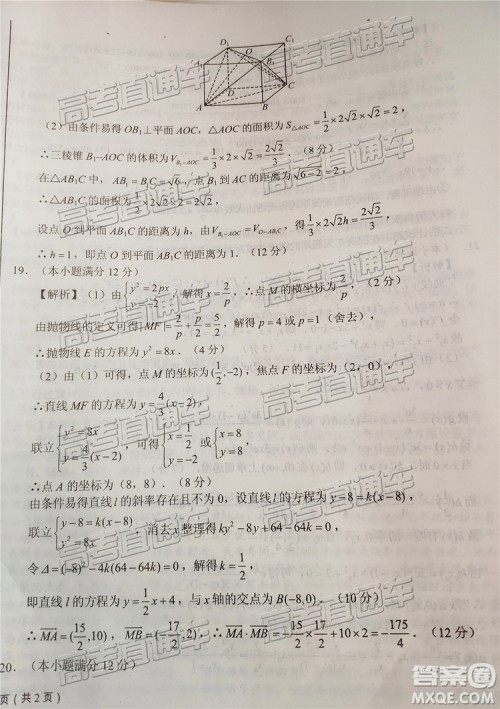 D₁ C₁
O
A₁ B₁
D C
A B
（2）由条件易得 OB₁⊥平面 AOC，△AOC 的面积为 S△AOC = 1/2 × 2√2 × √2 = 2，
∴三棱锥 B₁-AOC 的体积为 V_{B₁-AOC} = 1/3 × 2 × √2 = 2√2/3．（8 分）
在△AB₁C 中，AB₁ = B₁C = √6，点 B₁ 到 AC 的距离为 √(6-2) = 2，
∴△AB₁C 的面积为 1/2 × 2√2 × 2 = 2√2，
设点 O 到平面 AB₁C 的距离为 h，由 V_{B₁-AOC} = V_{O-AB₁C}，得 1/3 × 2√2h = 2√2/3，
∴h = 1，即点 O 到平面 AB₁C 的距离为 1．（12 分）
19．（本小题满分 12 分）
【解析】（1）由 {y² = 2px, y² = 2√x}，解得 x = 2/p，∴点 M 的横坐标为 2/p，
由抛物线的定义可得|MF| = 2/p + p/2 = 5/2，解得 p = 4 或 p = 1（舍去），
∴抛物线 E 的方程为 y² = 8x．（4 分）
（2）由（1）可得，点 M 的坐标为 (1/2, -2)，焦点 F 的坐标为（2，0），
∴直线 MF 的方程为 y = 4/3(x-2)，
联立 {y² = 8x, y = 4/3(x-2)}，可得 {x = 1/2, y = -2} 或 {x = 8, y = 8}，
∴点 A 的坐标为（8，8）．
由条件易得直线 l 的斜率存在且不为 0，设直线 l 的方程为 y-8 = k(x-8)，
联立 {y-8 = k(x-8), y² = 8x}，消去 x 整理得 ky² - 8y + 64 - 64k = 0，
令Δ = (-8)² - 4k(64-64k) = 0，解得 k = 1/2，
即直线 l 的方程为 y = 1/2 x + 4，与 x 轴的交点为 B(-8,0)．（10 分）
∴MA = (15/2, 10)，MB = (-17/2, 2)，∴MA · MB = -15/2 × 17/2 + 10×2 = -175/4．（12 分）
20．（本小题满分 12 分）
页（共 2 页）
高考直通车
答案圈
MXQE.COM